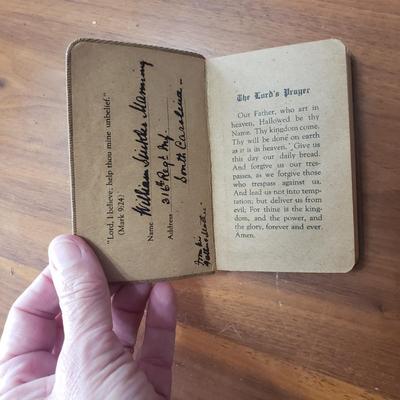 "Lord, I believe, help thou mine unbelief."
(Mark 9:24)
Name William Sinkler Manning
316th Reg't Inf.
Address South Carolina -
From his
The Lord's Prayer
Our Father, who art in
heaven, Hallowed be thy
Name. Thy kingdom come.
Thy will be done on earth
as it is in heaven. Give us
this day our daily bread.
And forgive us our tres-
passes, as we forgive those
who trespass against us.
And lead us not into temp-
tation; but deliver us from
evil; For thine is the king-
dom, and the power, and
the glory, forever and ever
Amen.